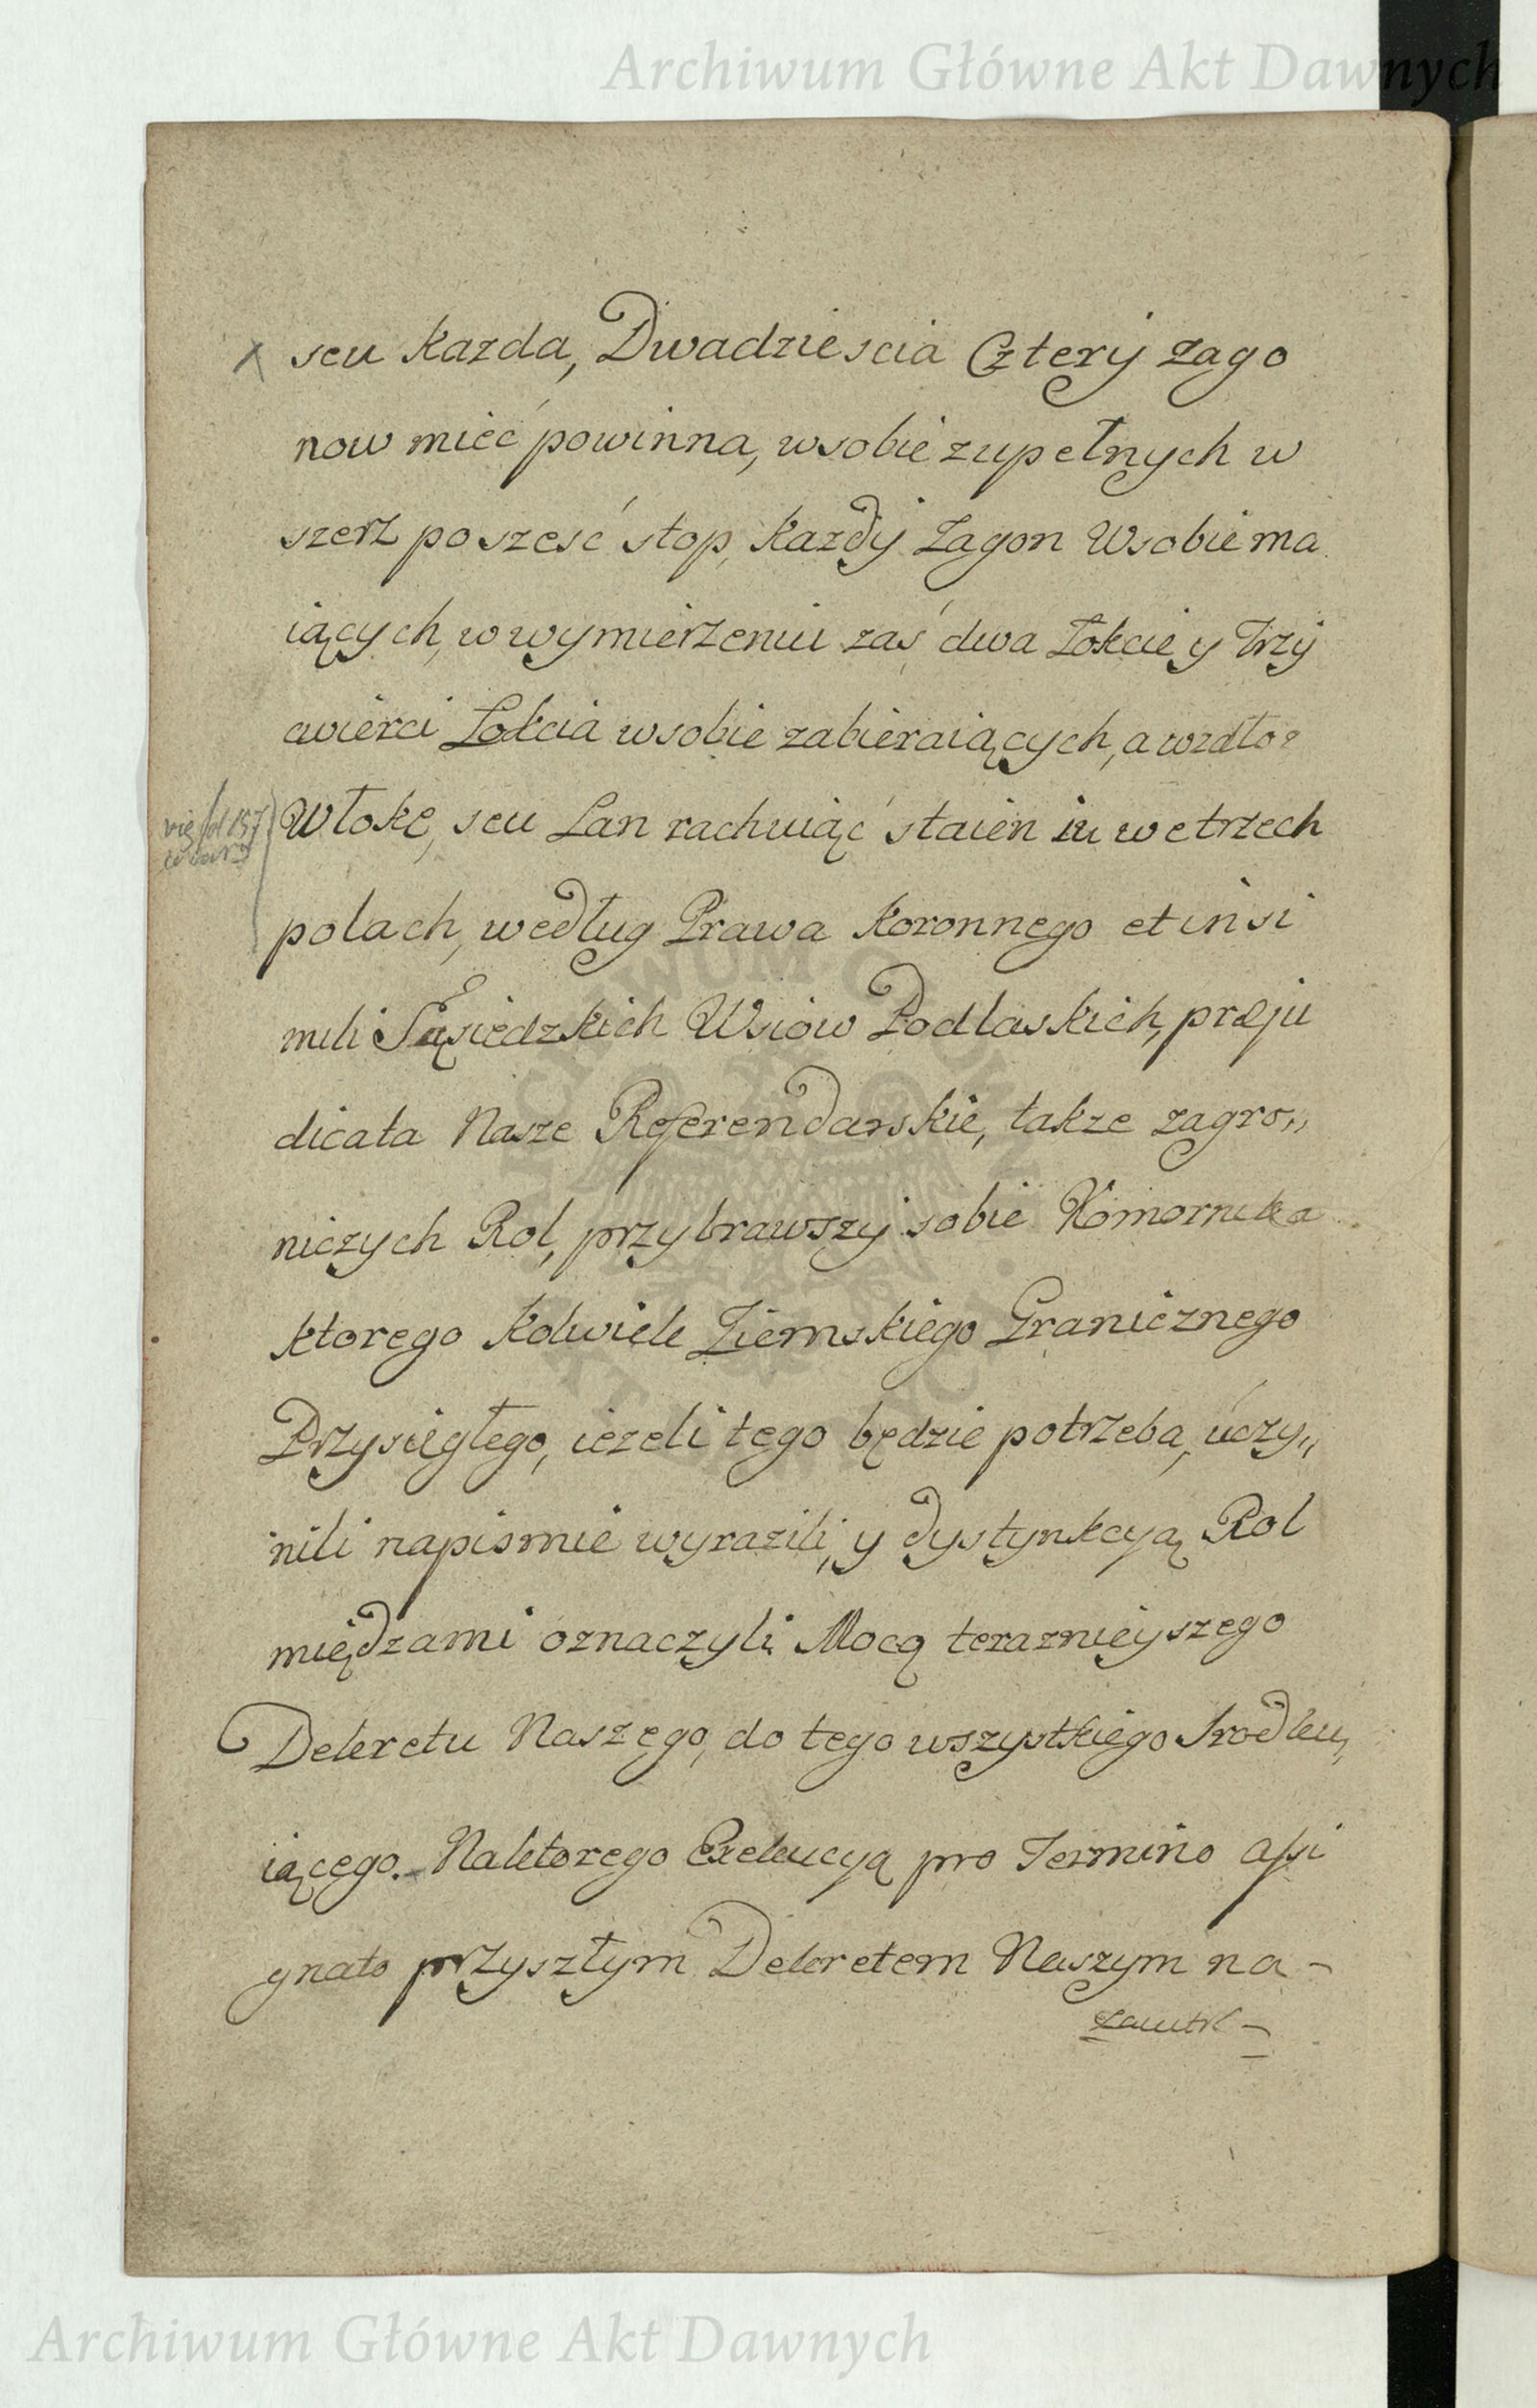 Archiwum Główne Akt Dawnych
seu Kazda, Dwadziescia Cztery zago
now mieć powinna, wsobie zupełnych w
szerz poszesć stop, Kazdy Zagon Wsobie ma
iących, w wymierzeniu zaś dwa Łokcie y Trzy
cwierci Łokcia wsobie zabieraiących, a wzdłoz
Włokę, seu Łan rachuiąć staien iu wetrzech
polach, według Prawa Koronnego et in si
mili Sąsiedzkich Wsiow Podlaskich, præju
dicata Nasze Referendarskie, takze zagro„
niczych Rol, przybrawszy sobie Komornika
ktorego Kolwiek Ziemskiego Granicznego
Przysięgłego, iezeli tego będzie potrzeba, uczy„
nili napismie wyrazili, y dystynkcyą Rol
międzami oznaczyli Mocą teraznieyszego
Dekretu Naszego, do tego wszystkiego Srodku„
iącego. Naktorego Exekucyą pro Termino assi
gnato przyszłym Dekretem Naszym na-
Archiwum Główne Akt Dawnych